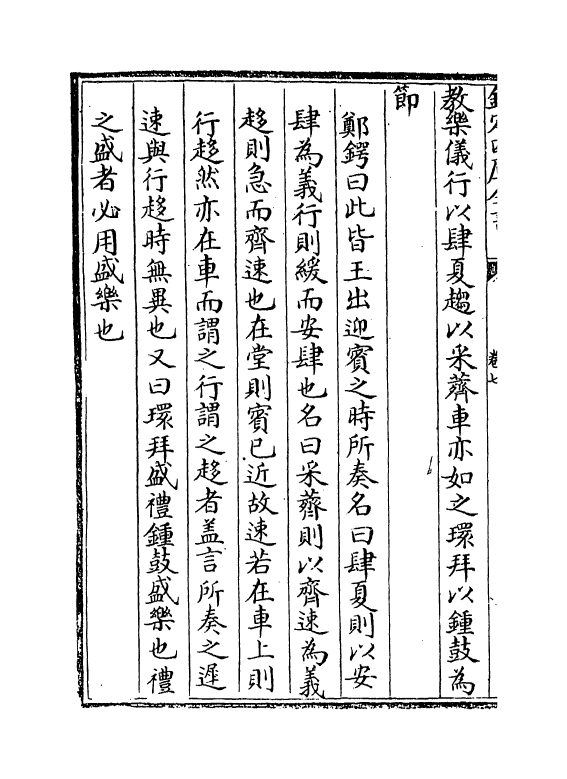 欽定四庫全書　卷七
教樂儀行以肆夏趨以采薺車亦如之環拜以鍾鼓為
節
鄭鍔曰此皆王出迎賓之時所奏名曰肆夏則以安
肆為義行則緩而安肆也名曰采薺則以齊速為義
趍則急而齊速也在堂則賓已近故速若在車上則
行趍然亦在車而謂之行謂之趍者盖言所奏之遲
速與行趍時無異也又曰環拜盛禮鍾鼓盛樂也禮
之盛者必用盛樂也